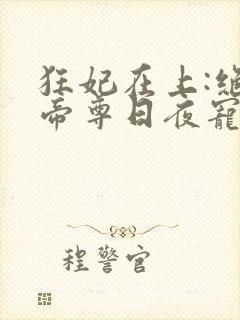 狂妃在上:绝
帝尊日夜寵
程警官